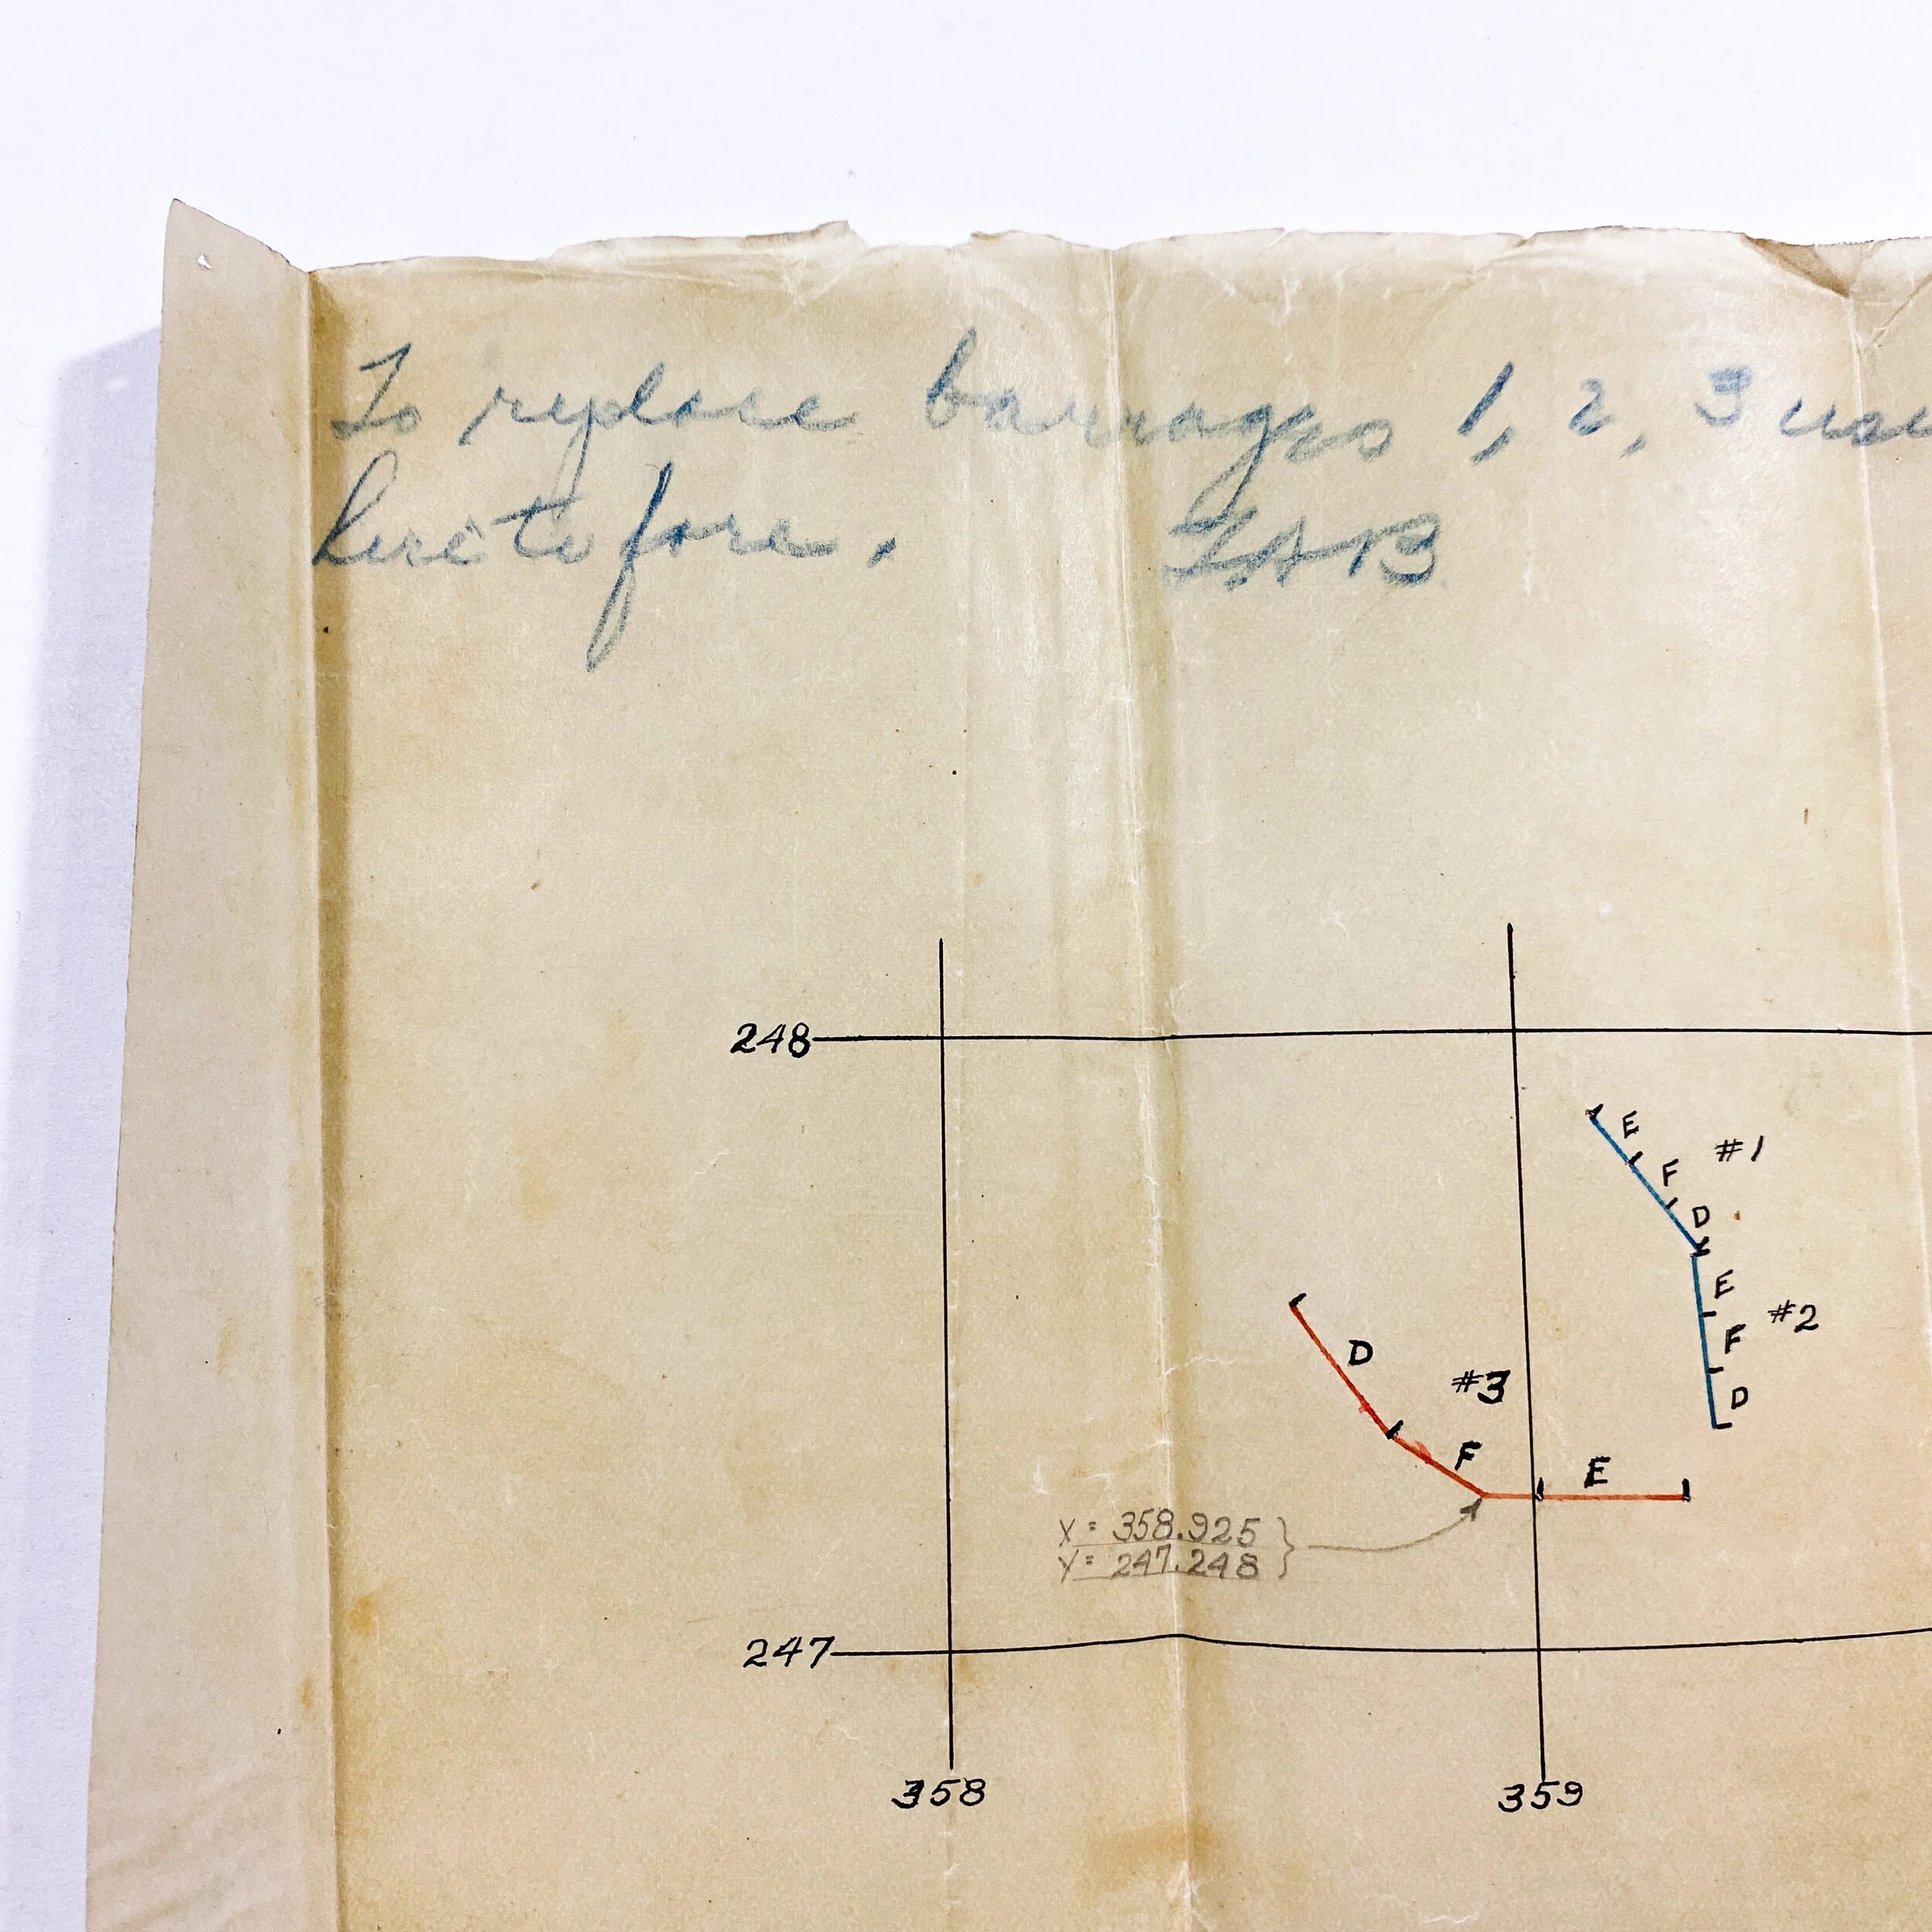 To replace barrages 1, 2, 3
heretofore.
248
E
F #1
D
E
F #2
D
D
#3
F
E
X = 358.925
Y = 247.248
247
358 359